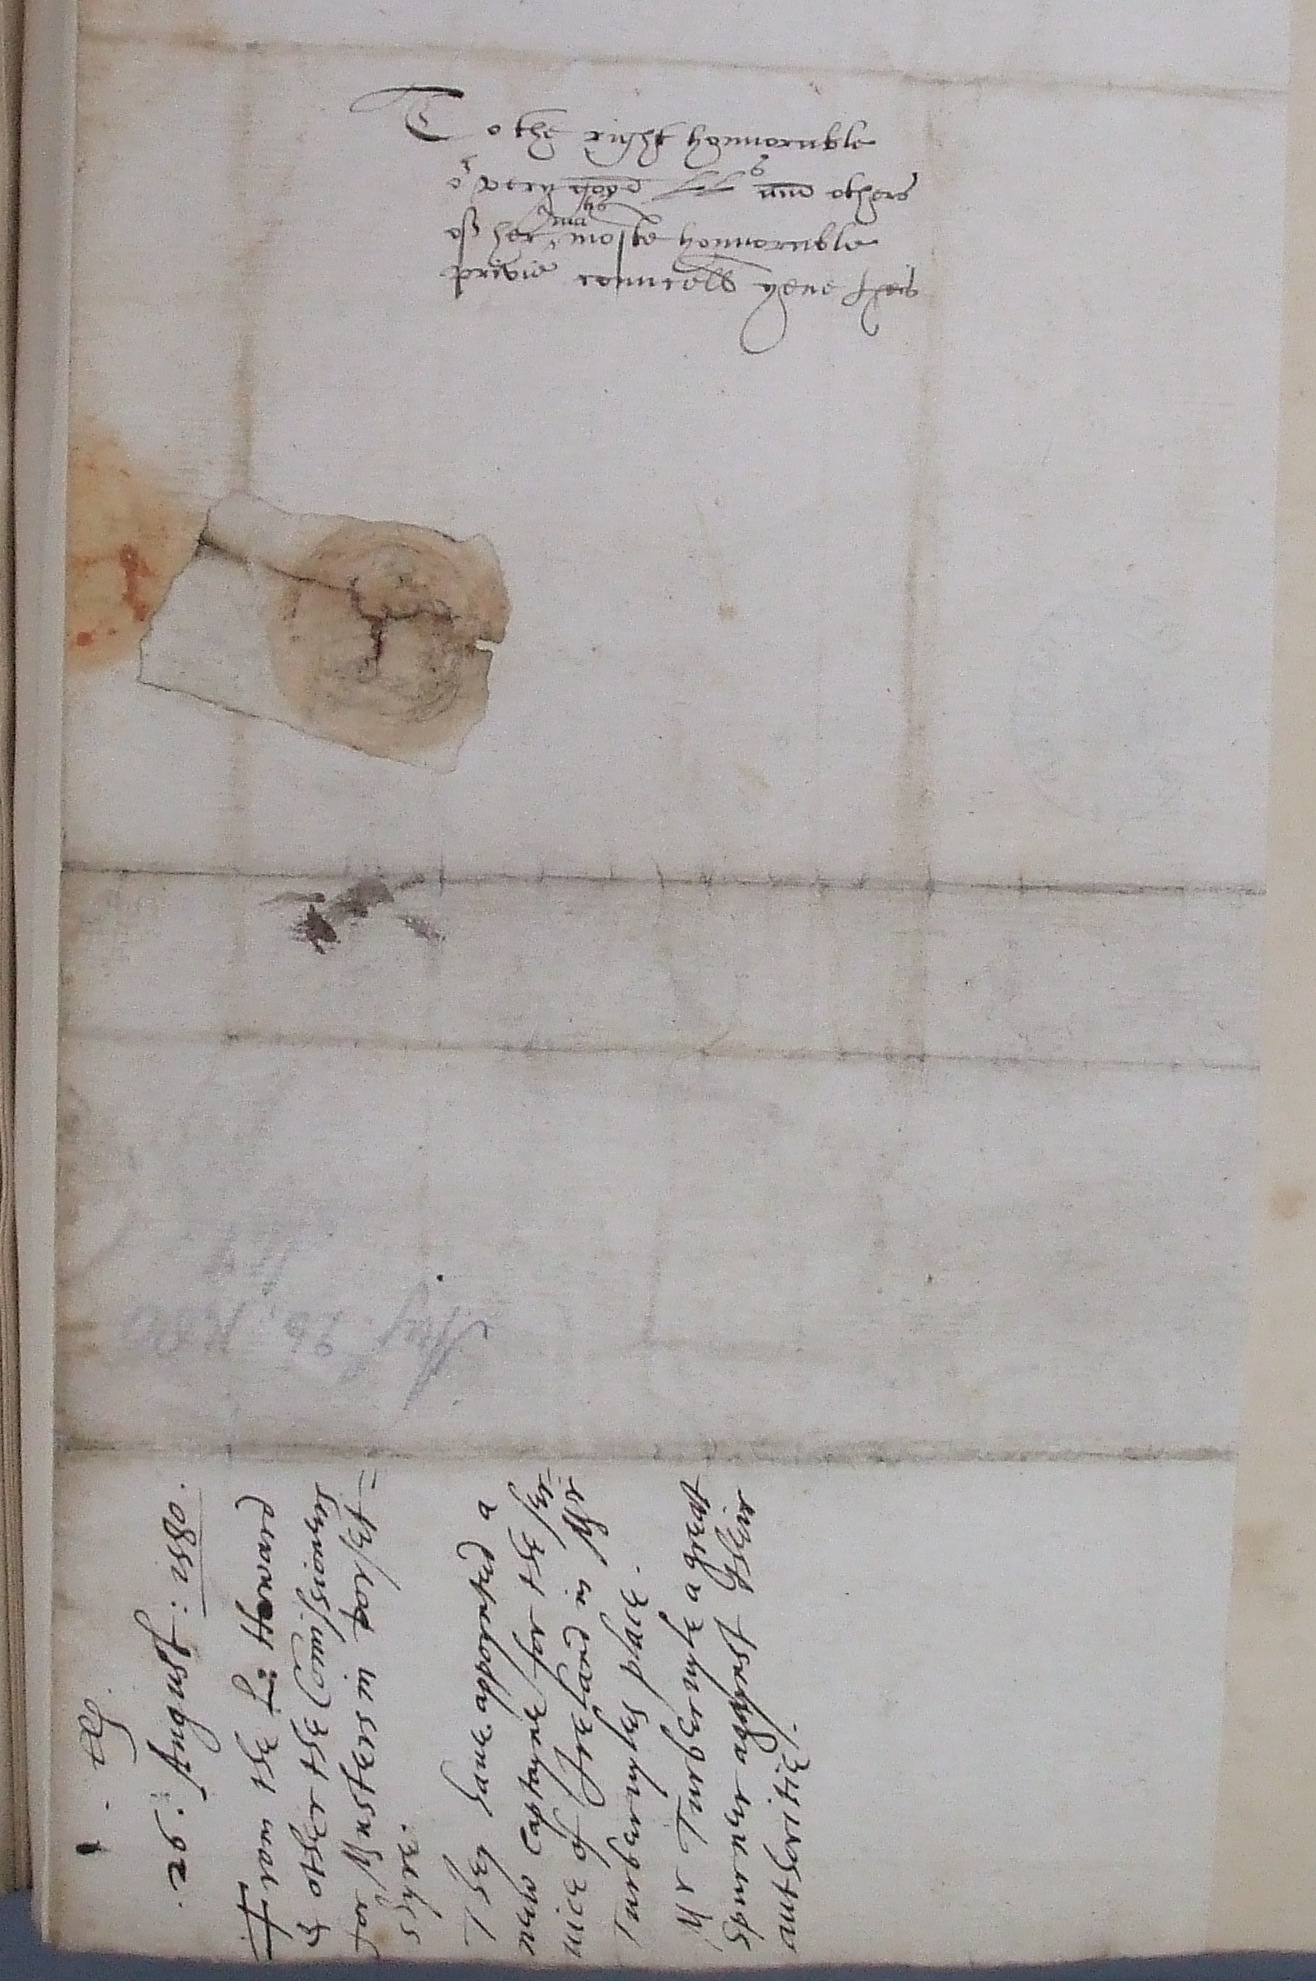 To the right honnorable
or very goode LLs and others
off her maties moste honnorable
privie councell yeue theis
Aug. 26. 1580
26. August: 1580.
From the L: Howard
& other the Comissioners
for Musters in dorset=
shyre.
They haue appointed a
new captayne for the ser=
uice of Ireland in Mr
Turberuyles place.
Mr Turberuyle a great
spurner against their
authoritie.